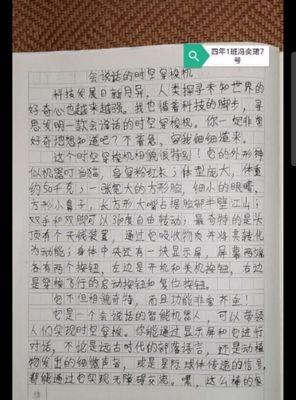 四年1班冯奕珺7
号
会说话的时空穿梭机
科技发展日新月异，人类探寻未知世界的
好奇心也越来越强。我也循着科技的脚步，寻
思发明一款会说话的时空穿梭机，你一定非常
好奇想想知道吧？不着急，容我细细道来。
这个时空穿梭机相貌很特别！它的外形神
似机器叮当猫，身穿粉红色；体型庞大，体重
约50千克；一张宽大的方形脸，细小的眼睛，
方形小鼻子，长方形大嘴占据脸部半壁江山；
双手和双脚可以360度自由转动；最奇特的是头
顶有个天线装置，通过它吸收物质并将其转化
为动能；身体中央还有一块显示屏，屏幕两端
各有两个按钮，左边是开机和关机按钮，右边
是穿梭飞行的启动按钮和复位按钮。
它不但相貌奇特，而且功能非常齐全！
它是一个会说话的智能机器人，可以带领
人们实现时空穿梭。你能通过显示屏和它进行
对话，不论是远古时代的部落语言，还是动植
物发出的细微声音，或是星际球体传递的信号，
都能通过它实现无障碍交流。嘿，这么棒的发